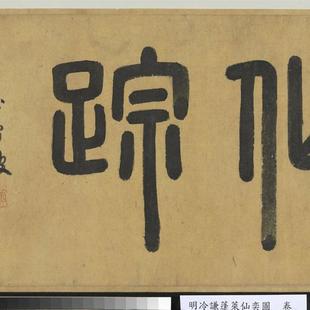 仙踪
明冷謙蓬萊仙奕圖 卷